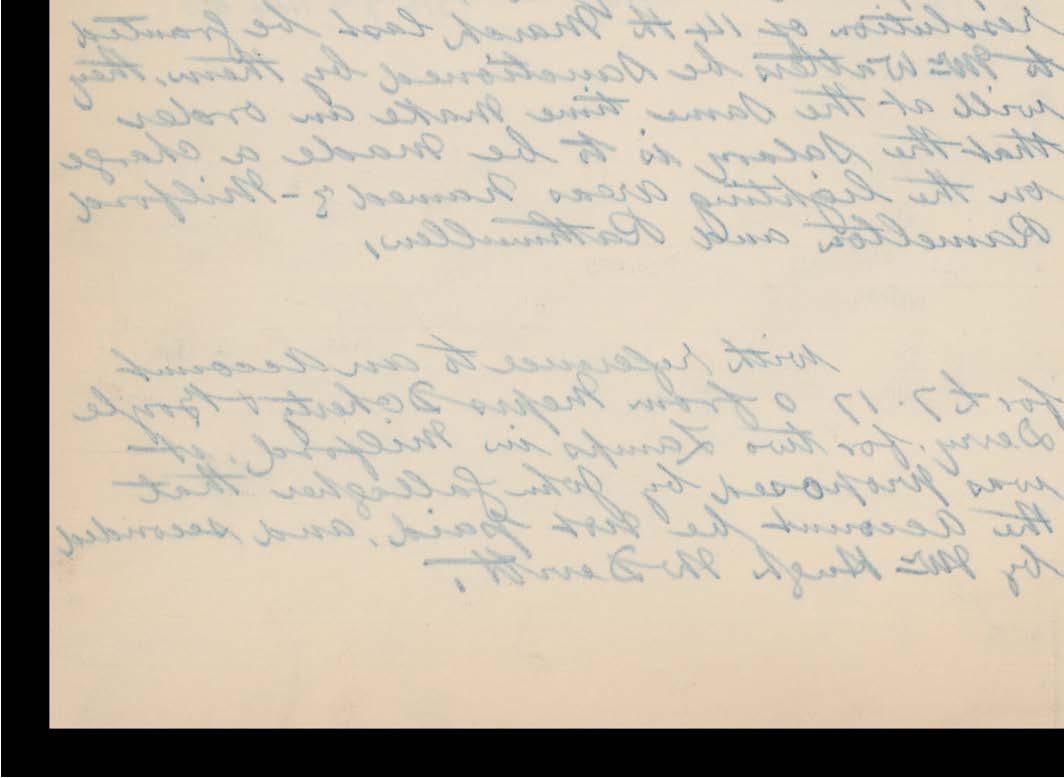 resolution of 14th March last be granted
to Mr Watters be sanctioned by them, they
will at the same time make an order
that the salary is to be made a charge
on the lighting areas named - Milford
Ramelton and Rathmullen,
With reference to an account
for £7. 17. 0 from Messrs Doherty & Boyle
Derry. for two Lamps in Milford. it
was proposed by John Gallagher that
the account be not paid. and seconded
by Mr Hugh McDevitt.